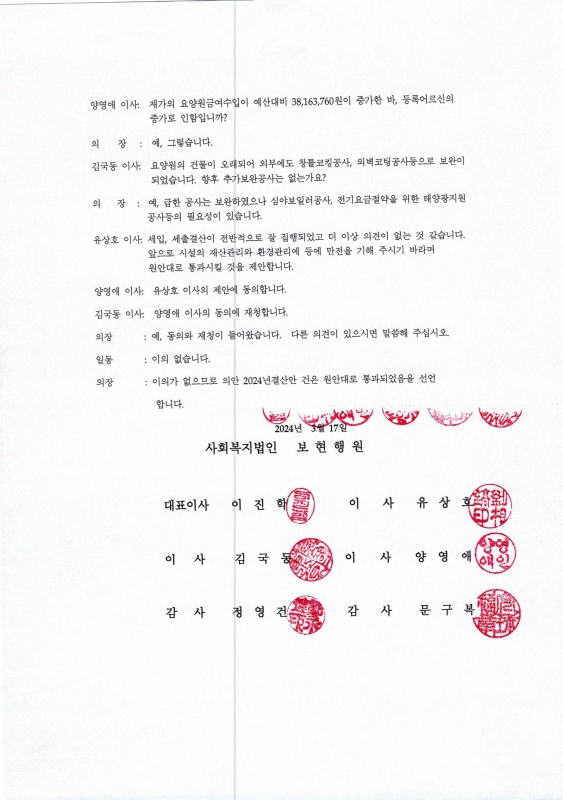 양영애 이사: 재가의 요양원급여수입이 예산대비 38,163,760원이 증가한 바, 등록어르신의
증가로 인함입니까?
의 장 : 예, 그렇습니다.
김국동 이사: 요양원의 건물이 오래되어 외부에도 창틀코킹공사, 외벽코팅공사등으로 보완이
되었습니다. 향후 추가보완공사는 없는가요?
의 장 : 예, 급한 공사는 보완하였으나 심야보일러공사, 전기요금절약을 위한 태양광지원
공사등의 필요성이 있습니다.
유상호 이사: 세입, 세출결산이 전반적으로 잘 집행되었고 더 이상 의견이 없는 것 같습니다.
앞으로 시설의 재산관리와 환경관리에 등에 만전을 기해 주시기 바라며
원안대로 통과시킬 것을 제안합니다.
양영애 이사: 유상호 이사의 제안에 동의합니다.
김국동 이사: 양영애 이사의 동의에 재청합니다.
의장 : 예, 동의와 재청이 들어왔습니다. 다른 의견이 있으시면 말씀해 주십시오.
일동 : 이의 없습니다.
의장 : 이의가 없으므로 의안 2024년결산안 건은 원안대로 통과되었음을 선언
합니다.
2024년 3월 17일
사회복지법인 보현행원
대표이사 이진학 이 사 유상호
이 사 김국동 이 사 양영애
감 사 정영건 감 사 문구복